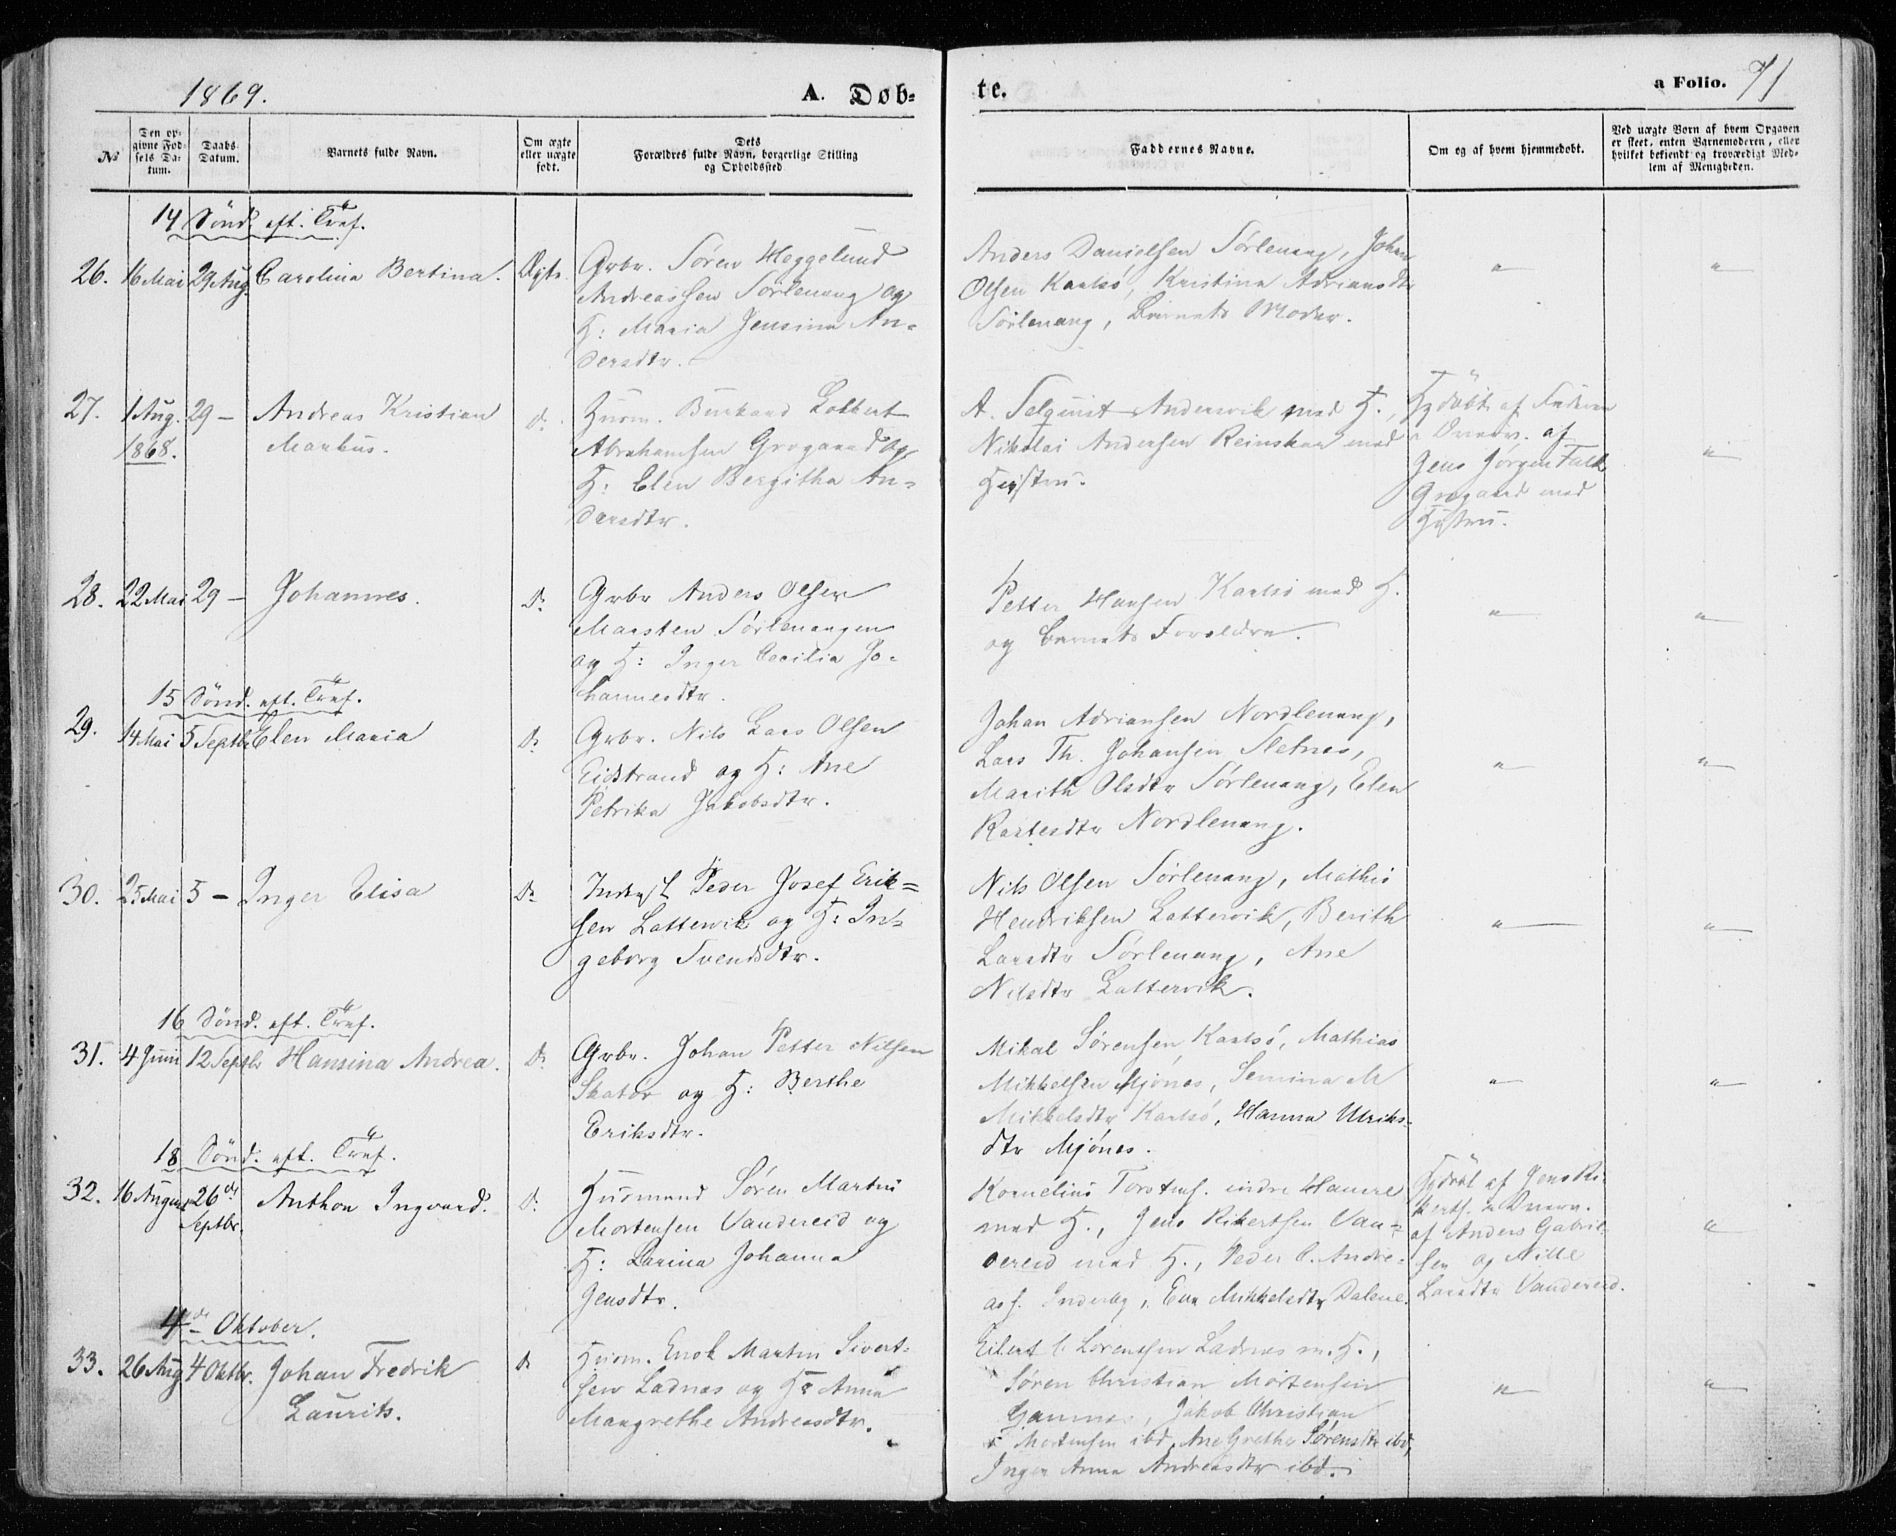 1869.
A. Døb-
te.
a Folio. 71
No
Den op-
givne Fød-
sels Da-
tum.
Daabs
Datum.
Barnets fulde Navn.
Om ægte
eller uægte
født.
Dets
Forældres fulde Navn, borgerlige Stilling
og Opholdssted.
Faddernes Navne.
Om og af hvem hjemmedøbt.
Ved uægte Børn af hvem Opgaven
er skeet, enten Barnemoderen, eller
hvilket bekjendt og troværdigt Med-
lem af Menigheden.
14 Sönd. eft. Tref.
26. 16 Mai 29 Aug. Carolina Bertina. Ægte.
Grbr. Sören Heggelund
Andreassen Sörlenang og
H: Maria Jensina An-
dersdtr.
Anders Danielsen Sörlenang, Johan
Olsen Karlsö, Kristina Adriansdtr
Sörlenang, Barnets Moder.
" "
27. 1 Aug. 29 - Andreas Kristian D.
1868. Markus.
Husm. Burhard Lobbert
Abrahamsen Grogaard og
H: Elen Bergitha An-
dersdtr.
A. Selquist Andersvik med H.,
Nikolai Andersen Reinskar med
Hustru.
Hjdöbt af Faderen
Overv. af
Jens Jörgen Falk
Grogaard med
Hustru.
"
28. 22 Mai 29 - Johannes. D.
Grbr Anders Olsen
Marsten Sörlenangen
og H: Inger Cecilia Jo-
hannesdtr.
Petter Hansen Karlsö med H.
og Barnets Forældre.
" "
15 Sönd. eft. Tref.
29. 14 Mai 5 Septbr Elen Maria D.
Grbr. Nils Lars Olsen
Eidstrand og H: Ane
Petrika Jakobsdtr.
Johan Adriansen Nordlenang,
Lars Th. Johansen Sletnes,
Marith Olsdtr Sörlenang, Elen
Rastesdtr Nordlenang.
" "
30. 25 Mai 5 - Inger Elisa D.
Inderst Peder Josef Erik-
sen Lattervik og H: In-
geborg Svendsdtr.
Nils Olsen Sörlenang, Mathis
Hendriksen Lattervik, Berith
Larsdtr Sörlenang, Ane
Nilsdtr Lattervik.
" "
16 Sönd. eft. Tref.
31. 4 Juni 12 Septbr Hansina Andrea. D.
Grbr. Johan Petter Nilsen
Skatör og H: Berthe
Eriksdtr.
Mikal Sörensen Karlsö, Mathias
Mikkelsen Mjönes, Semina M
Mikkelsdtr Karlsö, Hanna Ulriks-
dtr Mjönes.
" "
18 Sönd. eft. Tref.
32. 16 August 26de Anthon Ingvard. D.
Septbr.
Husmand Sören Martin
Mortensen Vandereid og
H: Larina Johanna
Jensdtr.
Kornelius Torstens. indre Havnre
med H., Jens Rikertsen Van-
dereid med H., Peder C. Andre-
as. Inderbg, Eva Mikkelsdtr Dalene.
Hjdöbt af Jens Ri-
kerts. Overv.
af Anders Gabriel-
sen og Nille
Larsdtr Vandereid.
"
4de Oktober.
33. 26 Aug 4 Oktbr. Johan Fredrik D.
Laurits.
Husm. Enok Martin Sivert-
sen Ladnes og H: Anna
Margrethe Andreasdtr.
Eilert C Lorentsen Ladnes m. H.,
Sören Christian Mortensen
Gamnes, Jakob Christian
Mortensen ibd, Ane Grethe Sörensdtr ibd,
Inger Anna Andreasdtr ibd.
" "